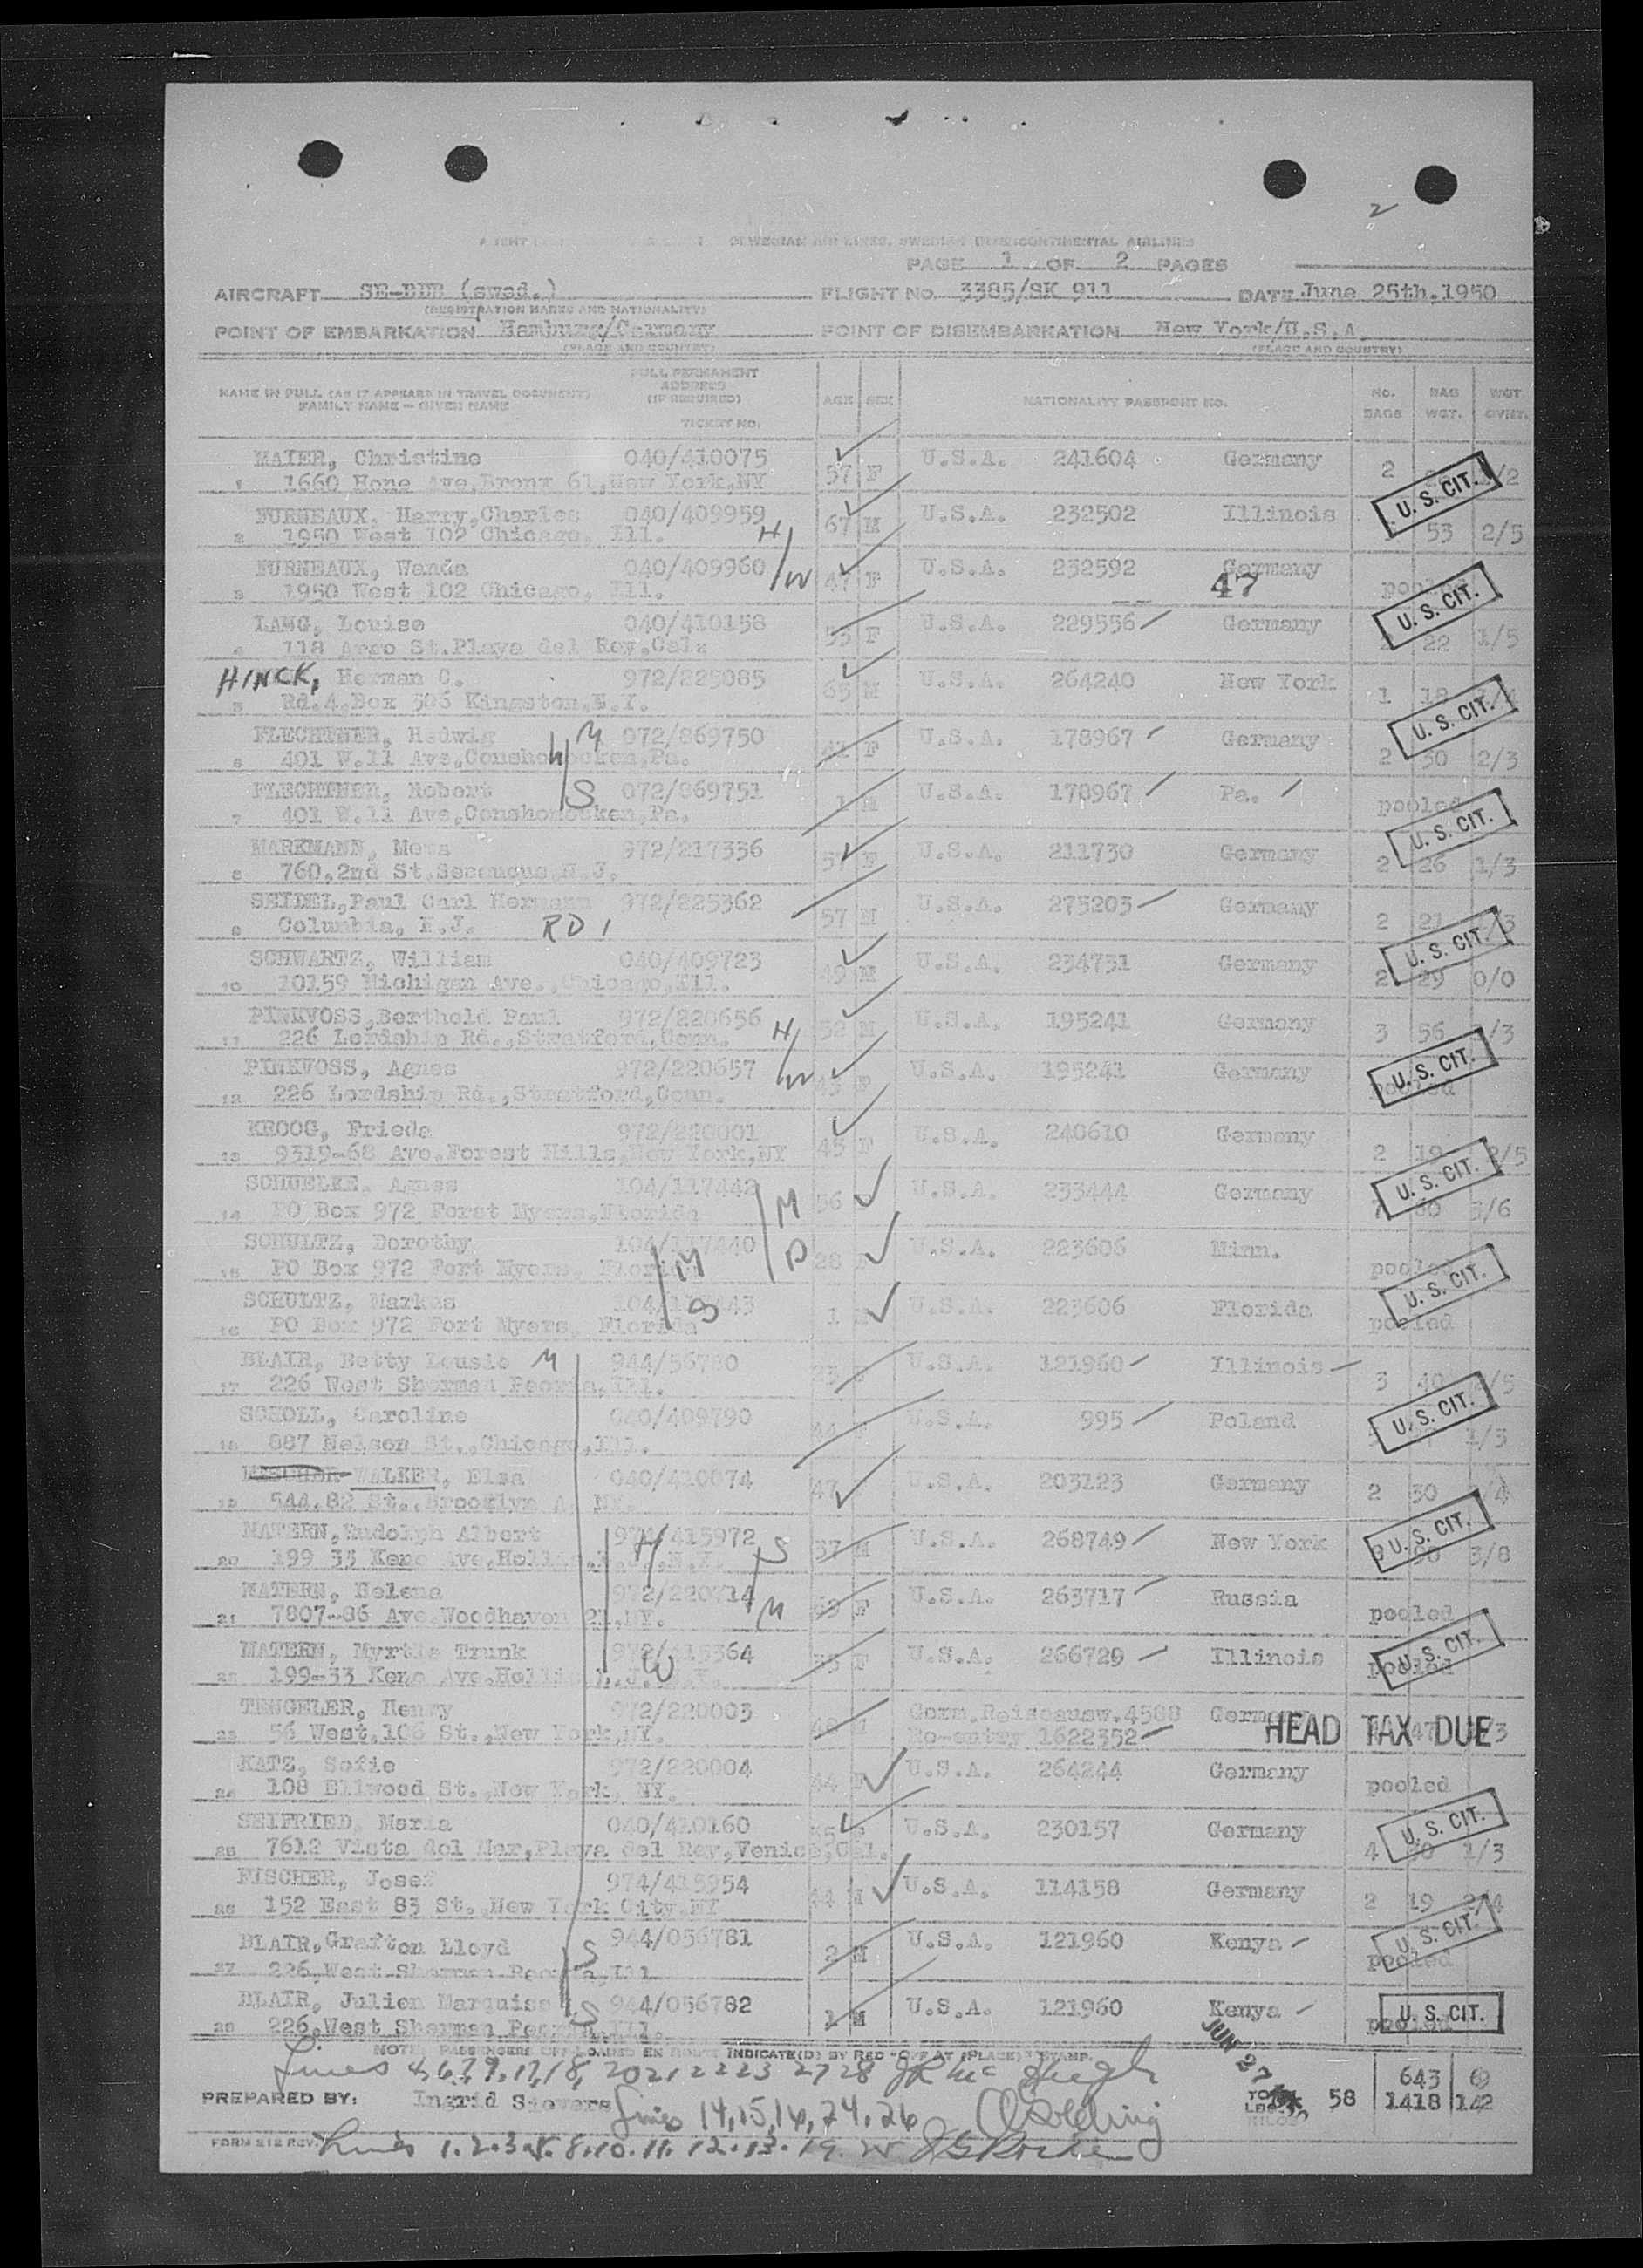 2
NORWEGIAN AIR LINES, SWEDISH INTERCONTINENTAL AIRLINES
PAGE 1 OF 2 PAGES
AIRCRAFT (swed.) FLIGHT No. 3385/SK 911 DATE June 25th,1950
(REGISTRATION MARKS AND NATIONALITY)
POINT OF EMBARKATION Hamburg/Germany POINT OF DISEMBARKATION New York/U.S.A.
(PLACE AND COUNTRY) (PLACE AND COUNTRY)
NAME IN FULL (AS IT APPEARS IN TRAVEL DOCUMENT) FAMILY NAME — GIVEN NAME FULL PERMANENT ADDRESS (IF REQUIRED) TICKET NO. AGE SEX NATIONALITY PASSPORT NO. NO. BAGS BAG WGT. WGT.
MAIER, Christine 040/410075 57 F U.S.A. 241604 Germany 2
1 1660 Hone Ave,Bronx 61,New York,NY U.S. CIT.
FURNEAUX, Harry,Charles 040/409959 67 M U.S.A. 232502 Illinois 53 2/5
2 1950 West 102 Chicago, Ill. H
FURNEAUX, Wanda 040/409960 W 47 F U.S.A. 232592 Germany pooled
3 1950 West 102 Chicago, Ill. 47 U.S. CIT.
LANG, Louise 040/410158 55 F U.S.A. 229556 Germany 22 1/5
4 118 Argo St.Playa del Rey,Cal.
HINCK, Herman C. 972/225085 65 M U.S.A. 264240 New York 1 18
5 Rd.4,Box 506 Kingston,N.Y. U.S. CIT.
FLECHTNER, Hedwig M 072/869750 41 F U.S.A. 178967 Germany 2 30 2/3
6 401 W.11 Ave,Conshohocken,Pa.
FLECHTNER, Robert S 072/869751 1 M U.S.A. 178967 Pa. pooled
7 401 W.11 Ave,Conshohocken,Pa. U.S. CIT.
MARKMANN, Meta 972/217336 57 F U.S.A. 211730 Germany 2 26 1/3
8 760,2nd St.Secaucus,N.J.
SEIDEL,Paul Carl Hermann 972/225362 57 M U.S.A. 275203 Germany 2 21
9 Columbia, N.J. RD 1 U.S. CIT.
SCHWARTZ, William 040/409723 49 M U.S.A. 234731 Germany 2 29 0/0
10 10159 Michigan Ave.,Chicago,Ill.
PINKVOSS,Berthold Paul 972/220656 H 52 M U.S.A. 195241 Germany 3 56
11 226 Lordship Rd.,Stratford,Conn.
PINKVOSS, Agnes 972/220657 W F U.S.A. 195241 Germany pooled
12 226 Lordship Rd.,Stratford,Conn. U.S. CIT.
KROOG, Frieda 972/220001 45 F U.S.A. 240610 Germany 2 19
13 9319-68 Ave,Forest Hills,New York,NY
SCHUELKE, Agnes 104/117442 M 56 U.S.A. 233444 Germany 3/6 U.S. CIT.
14 PO Box 972 Forst Myers,Florida
SCHULTZ, Dorothy 104/117440 D 28 U.S.A. 223606 Minn. pooled
15 PO Box 972 Fort Myers, Florida M U.S. CIT.
SCHULTZ, Markus 104/117443 S 1 U.S.A. 223606 Florida pooled
16 PO Box 972 Fort Myers, Florida
BLAIR, Betty Lousie M 944/56780 23 F U.S.A. 121960 Illinois 3 40
17 226 West Sherman Peoria,Ill. U.S. CIT.
SCHOLL, Caroline 040/409790 44 F U.S.A. 995 Poland 1/3
18 887 Nelson St.,Chicago,Ill.
WALKER, Elsa 040/410074 47 U.S.A. 203123 Germany 2 30
19 544,82 St.,Brooklyn NY. U.S. CIT.
MATERN,Rudolph Albert 974/415972 H S 37 M U.S.A. 268749 New York 3/8
20 199 33 Keno Ave,Hollis,
MATERN, Helene 972/220714 M 63 F U.S.A. 263717 Russia pooled
21 7807-86 Ave.Woodhaven 21,NY.
MATERN, Myrtle Trunk 972/415364 W 33 F U.S.A. 266729 Illinois pooled U.S. CIT.
22 199-33 Keno Ave,Hollis
TENGELER, Henry 972/220003 48 M Germ.Reiseausw.4588 Germany
23 56 West,106 St.,New York,NY. Re-entry 1622352 HEAD TAX DUE
KATZ, Sofie 972/220004 44 F U.S.A. 264244 Germany pooled
24 108 Ellwood St.,New York, NY.
SEIFRIED, Maria 040/410160 55 F U.S.A. 230157 Germany 4 1/3 U.S. CIT.
25 7612 Vista del Mar,Playa del Rey,Venice,Cal.
FISCHER, Josef 974/415954 44 M U.S.A. 114158 Germany 2 19 2/4
26 152 East 83 St.,New York City,NY
BLAIR,Grafton Lloyd S 944/056781 2 M U.S.A. 121960 Kenya pooled U.S. CIT.
27 226,West Sherman Peoria,Ill
BLAIR, Julien Marquiss S 944/056782 1 M U.S.A. 121960 Kenya pooled U.S. CIT.
28 226,West Sherman Peoria,Ill.
NOTE: PASSENGERS OFF-LOADED EN ROUTE INDICATE(D) BY RED "OFF AT (PLACE)" STAMP.
Lines 4,6,7,9,17,18, 20 21 22 23 27 28
JUN 27
643
PREPARED BY: Ingrid Sievers Lines 14,15,16,24,26 58 1418 142
FORM 212 REV. Lines 1.2.3.5.8.10.11.12.13.19.25